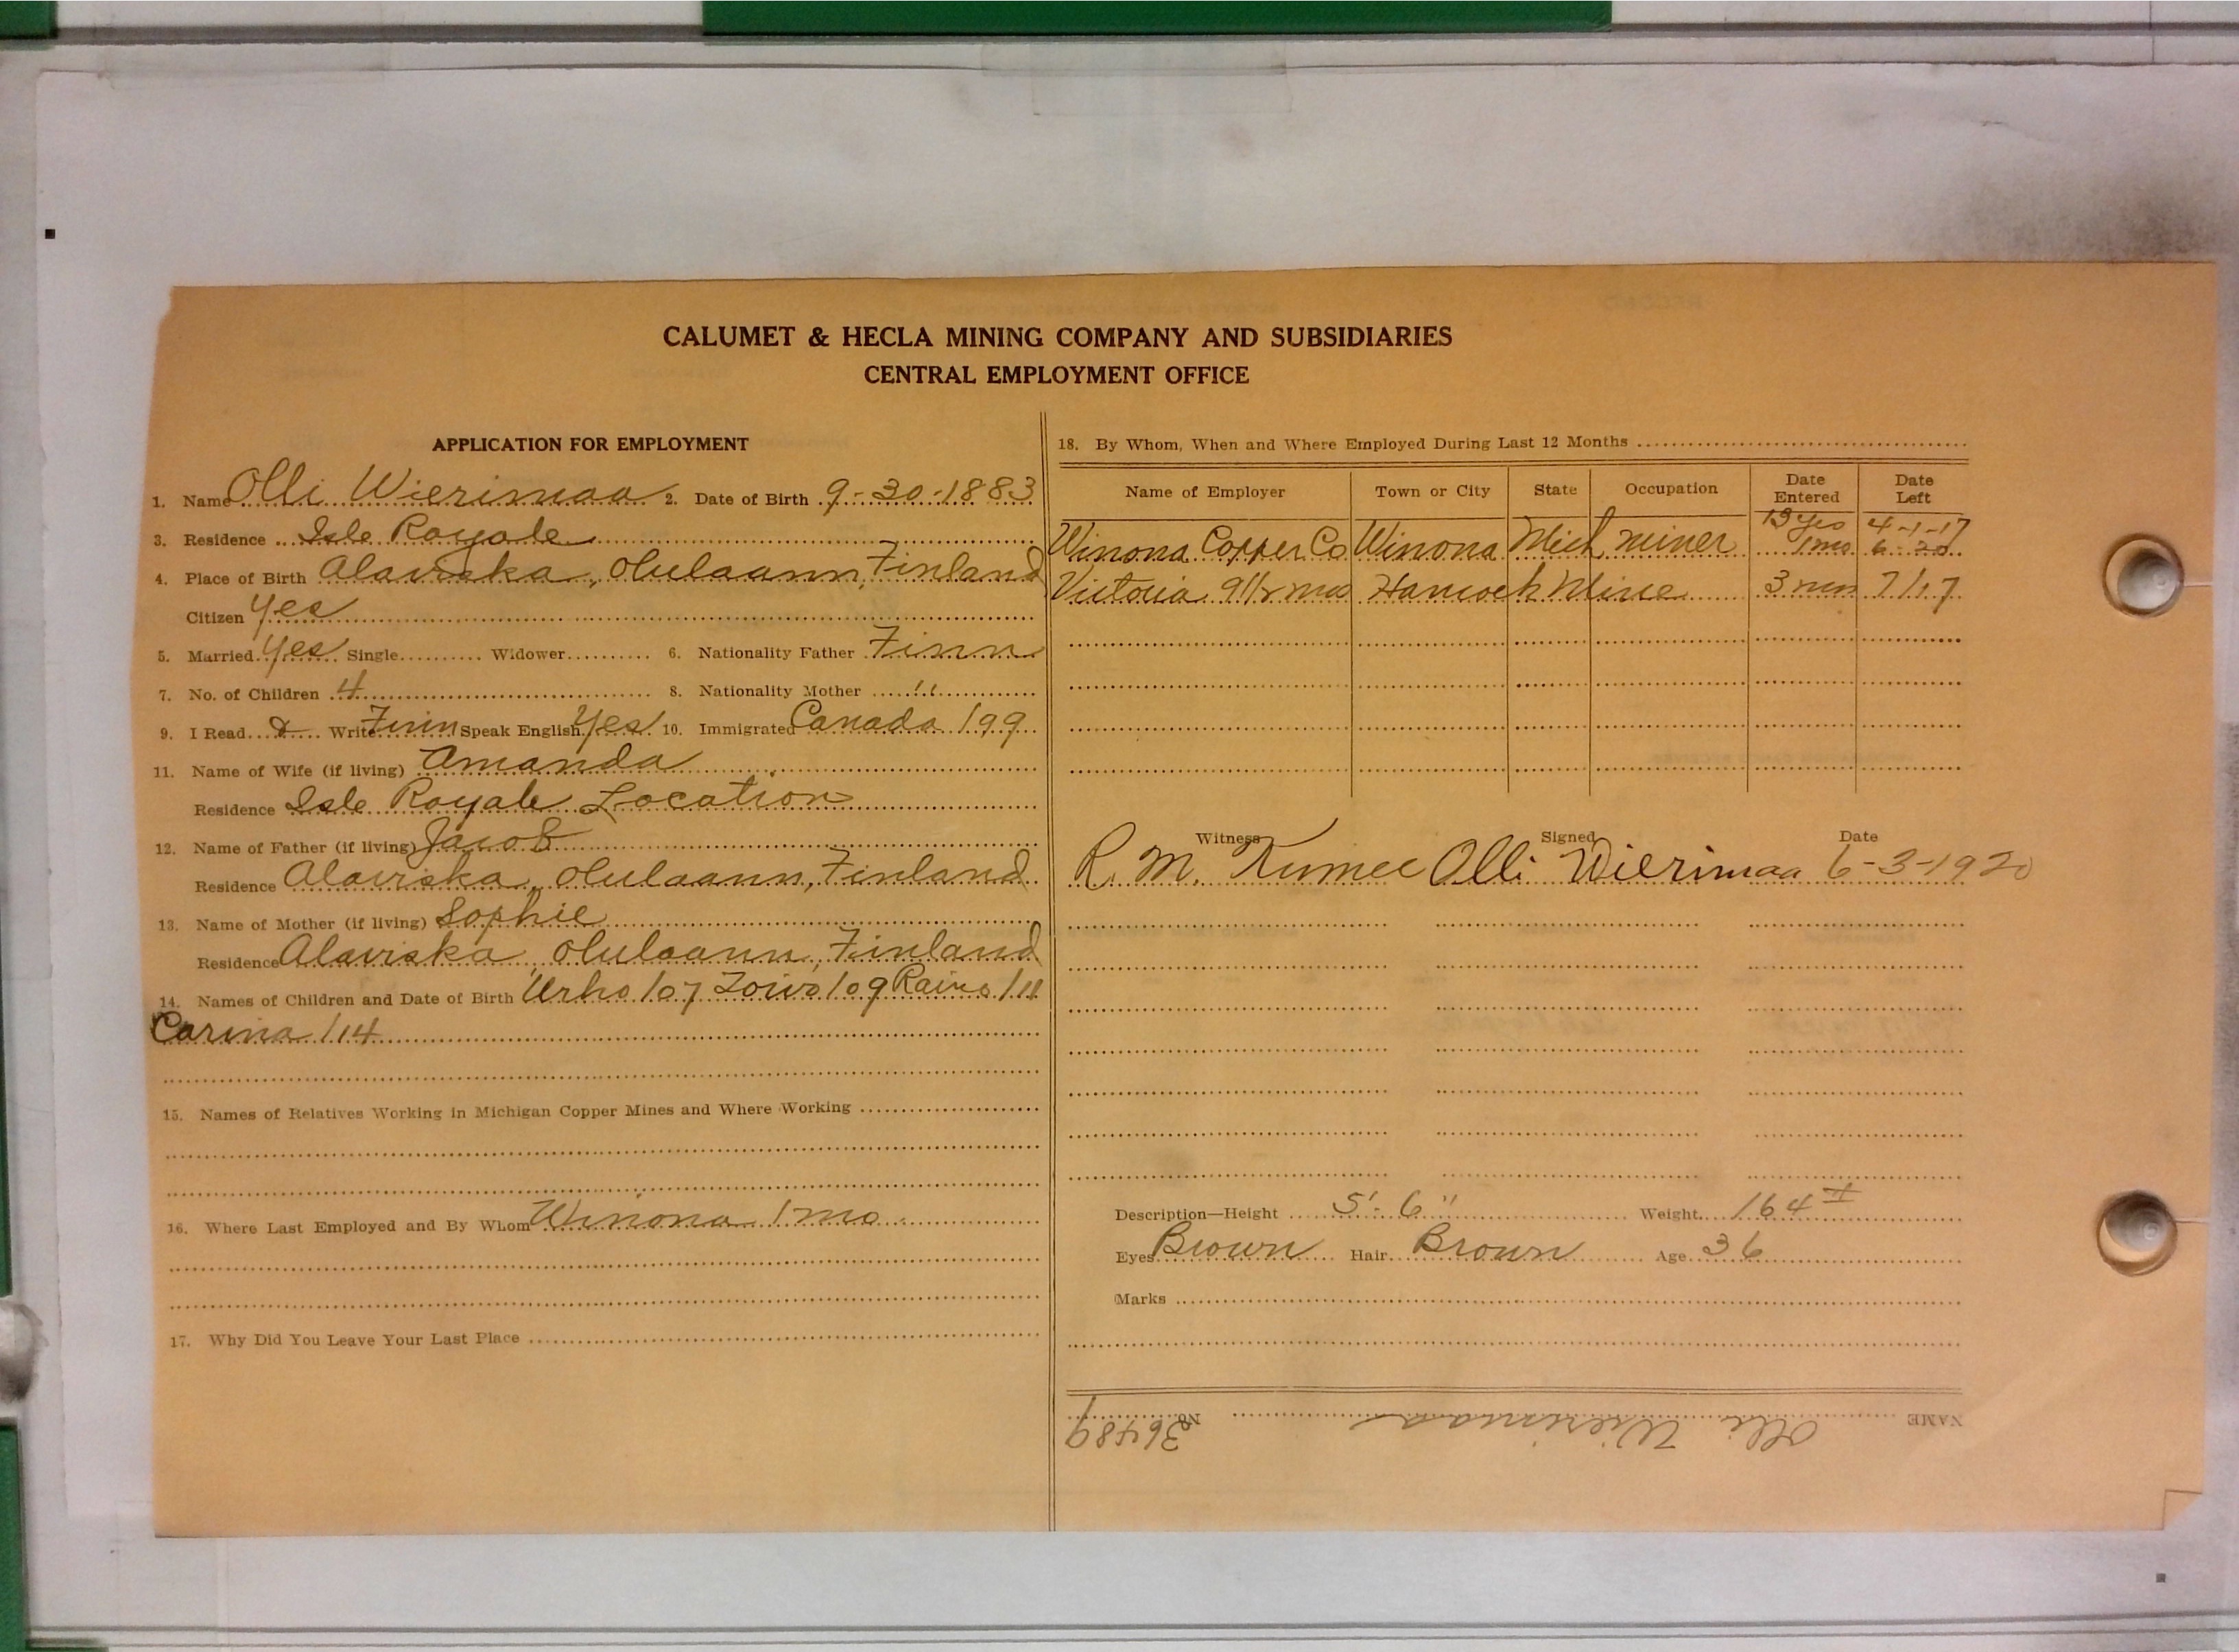 CALUMET & HECLA MINING COMPANY AND SUBSIDIARIES
CENTRAL EMPLOYMENT OFFICE
APPLICATION FOR EMPLOYMENT
1. Name Olli Wierimaa 2. Date of Birth 9-30-1883
3. Residence Isle Royale
4. Place of Birth Alavieska, Olulaann, Finland
Citizen Yes
5. Married Yes Single Widower 6. Nationality Father Finn
7. No. of Children 4 8. Nationality Mother "
9. I Read & Write Finn Speak English Yes 10. Immigrated Canada 199
11. Name of Wife (if living) Amanda
Residence Isle Royale Location
12. Name of Father (if living) Jacob
Residence Alavieska, Olulaann, Finland
13. Name of Mother (if living) Sophie
Residence Alavieska, Olulaann, Finland
14. Names of Children and Date of Birth Urho 107 Toivo 109 Raino 111
Carina 114
15. Names of Relatives Working in Michigan Copper Mines and Where Working
16. Where Last Employed and By Whom Winona 1 mo
17. Why Did You Leave Your Last Place
18. By Whom, When and Where Employed During Last 12 Months
Name of Employer Town or City State Occupation Date Entered Date Left
Winona Copper Co Winona Mich miner 13 yrs 4-1-17
1 mo 6-20
Victoria 9 1/2 mos Hancock Mine 3 mos 7/17
Witness Signed Date
R. M. Olli Wierimaa 6-3-1920
Description—Height 5'-6" Weight 164#
Eyes Brown Hair Brown Age 36
Marks
NAME Olli Wierimaa No. 36489